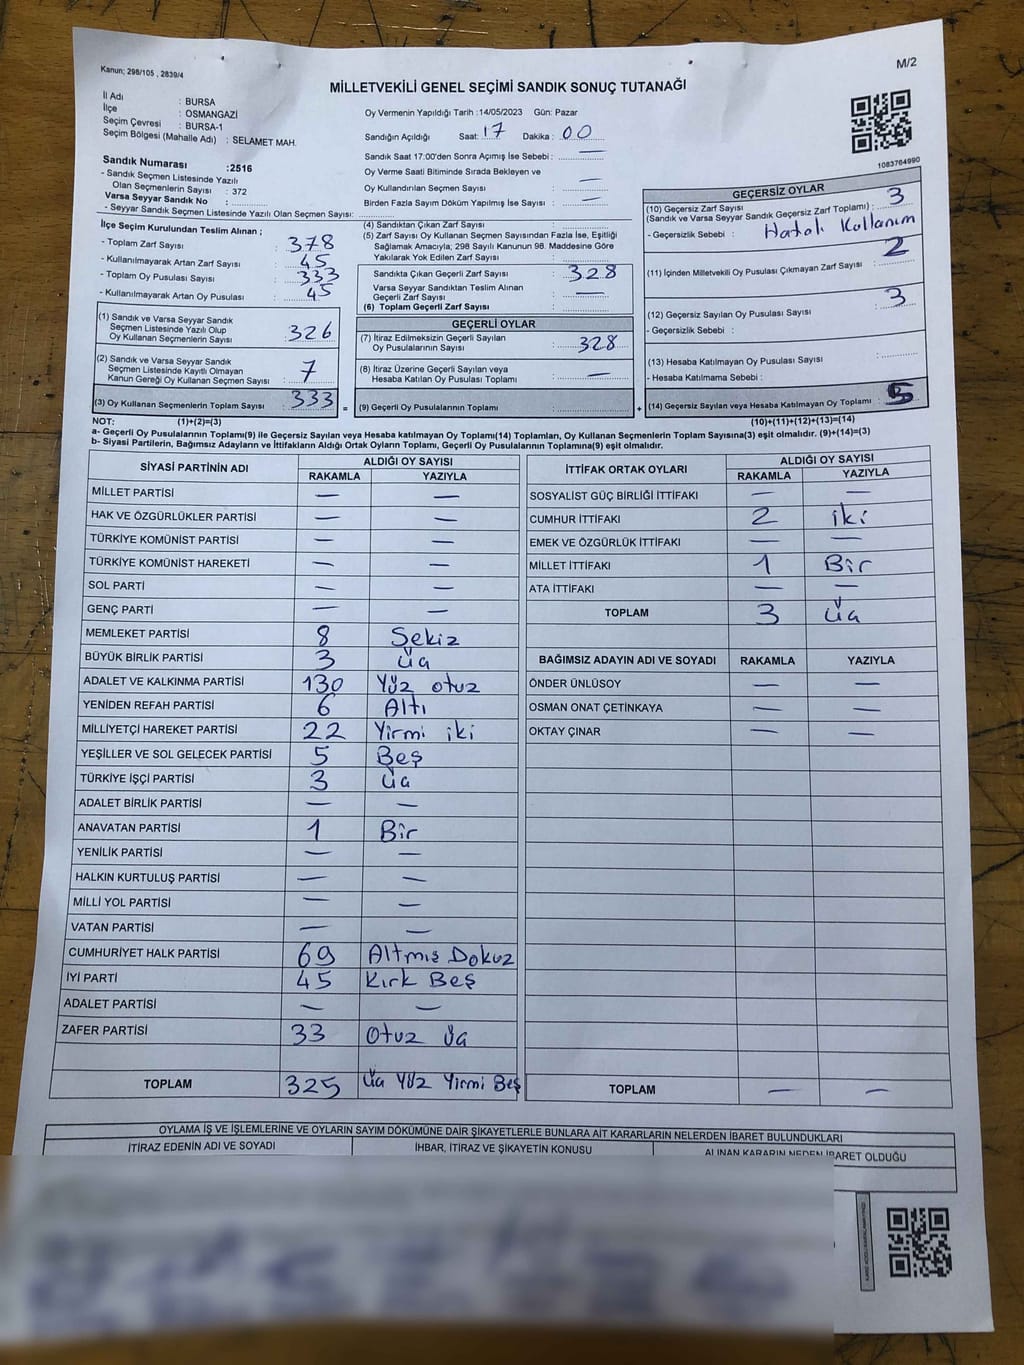 Kanun; 298/105 , 2839/4
M/2
MİLLETVEKİLİ GENEL SEÇİMİ SANDIK SONUÇ TUTANAĞI
İl Adı : BURSA
İlçe : OSMANGAZİ
Seçim Çevresi : BURSA-1
Seçim Bölgesi (Mahalle Adı) : SELAMET MAH.
Oy Vermenin Yapıldığı Tarih :14/05/2023 Gün: Pazar
Sandığın Açıldığı Saat: 17 Dakika : 00
Sandık Saat 17:00'den Sonra Açımış İse Sebebi : —
Oy Verme Saati Bitiminde Sırada Bekleyen ve
Oy Kullandırılan Seçmen Sayısı : —
Birden Fazla Sayım Döküm Yapılmış İse Sayısı : —
1083764990
Sandık Numarası :2516
- Sandık Seçmen Listesinde Yazılı
Olan Seçmenlerin Sayısı : 372
Varsa Seyyar Sandık No :
- Seyyar Sandık Seçmen Listesinde Yazılı Olan Seçmen Sayısı:
İlçe Seçim Kurulundan Teslim Alınan ;
- Toplam Zarf Sayısı : 378
- Kullanılmayarak Artan Zarf Sayısı : 45
- Toplam Oy Pusulası Sayısı : 333
- Kullanılmayarak Artan Oy Pusulası : 45
(1) Sandık ve Varsa Seyyar Sandık
Seçmen Listesinde Yazılı Olup
Oy Kullanan Seçmenlerin Sayısı : 326
(2) Sandık ve Varsa Seyyar Sandık
Seçmen Listesinde Kayıtlı Olmayan
Kanun Gereği Oy Kullanan Seçmen Sayısı : 7
(3) Oy Kullanan Seçmenlerin Toplam Sayısı : 333 =
(4) Sandıktan Çıkan Zarf Sayısı :
(5) Zarf Sayısı Oy Kullanan Seçmen Sayısından Fazla İse, Eşitliği
Sağlamak Amacıyla; 298 Sayılı Kanunun 98. Maddesine Göre
Yakılarak Yok Edilen Zarf Sayısı :
Sandıkta Çıkan Geçerli Zarf Sayısı : 328
Varsa Seyyar Sandıktan Teslim Alınan
Geçerli Zarf Sayısı : —
(6) Toplam Geçerli Zarf Sayısı :
GEÇERLİ OYLAR
(7) İtiraz Edilmeksizin Geçerli Sayılan
Oy Pusulalarının Sayısı : 328
(8) İtiraz Üzerine Geçerli Sayılan veya
Hesaba Katılan Oy Pusulası Toplamı : —
(9) Geçerli Oy Pusulalarının Toplamı : +
GEÇERSİZ OYLAR
(10) Geçersiz Zarf Sayısı
(Sandık ve Varsa Seyyar Sandık Geçersiz Zarf Toplamı) : 3
- Geçersizlik Sebebi : Hatalı Kullanım
(11) İçinden Milletvekili Oy Pusulası Çıkmayan Zarf Sayısı : 2
(12) Geçersiz Sayılan Oy Pusulası Sayısı : 3
- Geçersizlik Sebebi :
(13) Hesaba Katılmayan Oy Pusulası Sayısı :
- Hesaba Katılmama Sebebi :
(14) Geçersiz Sayılan veya Hesaba Katılmayan Oy Toplamı : 5
NOT: (1)+(2)=(3) (10)+(11)+(12)+(13)=(14)
a- Geçerli Oy Pusulalarının Toplamı(9) ile Geçersiz Sayılan veya Hesaba katılmayan Oy Toplamı(14) Toplamları, Oy Kullanan Seçmenlerin Toplam Sayısına(3) eşit olmalıdır. (9)+(14)=(3)
b- Siyasi Partilerin, Bağımsız Adayların ve İttifakların Aldığı Ortak Oyların Toplamı, Geçerli Oy Pusulalarının Toplamına(9) eşit olmalıdır.
SİYASİ PARTİNİN ADI ALDIĞI OY SAYISI
RAKAMLA YAZIYLA
MİLLET PARTİSİ — —
HAK VE ÖZGÜRLÜKLER PARTİSİ — —
TÜRKİYE KOMÜNİST PARTİSİ — —
TÜRKİYE KOMÜNİST HAREKETİ — —
SOL PARTİ — —
GENÇ PARTİ — —
MEMLEKET PARTİSİ 8 Sekiz
BÜYÜK BİRLİK PARTİSİ 3 Üç
ADALET VE KALKINMA PARTİSİ 130 Yüz otuz
YENİDEN REFAH PARTİSİ 6 Altı
MİLLİYETÇİ HAREKET PARTİSİ 22 Yirmi iki
YEŞİLLER VE SOL GELECEK PARTİSİ 5 Beş
TÜRKİYE İŞÇİ PARTİSİ 3 Üç
ADALET BİRLİK PARTİSİ — —
ANAVATAN PARTİSİ 1 Bir
YENİLİK PARTİSİ — —
HALKIN KURTULUŞ PARTİSİ — —
MİLLİ YOL PARTİSİ — —
VATAN PARTİSİ — —
CUMHURİYET HALK PARTİSİ 69 Altmış Dokuz
İYİ PARTİ 45 Kırk Beş
ADALET PARTİSİ — —
ZAFER PARTİSİ 33 Otuz Üç
TOPLAM 325 Üç Yüz Yirmi Beş
İTTİFAK ORTAK OYLARI ALDIĞI OY SAYISI
RAKAMLA YAZIYLA
SOSYALİST GÜÇ BİRLİĞİ İTTİFAKI — —
CUMHUR İTTİFAKI 2 iki
EMEK VE ÖZGÜRLÜK İTTİFAKI — —
MİLLET İTTİFAKI 1 Bir
ATA İTTİFAKI — —
TOPLAM 3 Üç
BAĞIMSIZ ADAYIN ADI VE SOYADI RAKAMLA YAZIYLA
ÖNDER ÜNLÜSOY — —
OSMAN ONAT ÇETİNKAYA — —
OKTAY ÇINAR — —
TOPLAM — —
OYLAMA İŞ VE İŞLEMLERİNE VE OYLARIN SAYIM DÖKÜMÜNE DAİR ŞİKAYETLERLE BUNLARA AİT KARARLARIN NELERDEN İBARET BULUNDUKLARI
İTİRAZ EDENİN ADI VE SOYADI İHBAR, İTİRAZ VE ŞİKAYETİN KONUSU ALINAN KARARIN NEDEN İBARET OLDUĞU